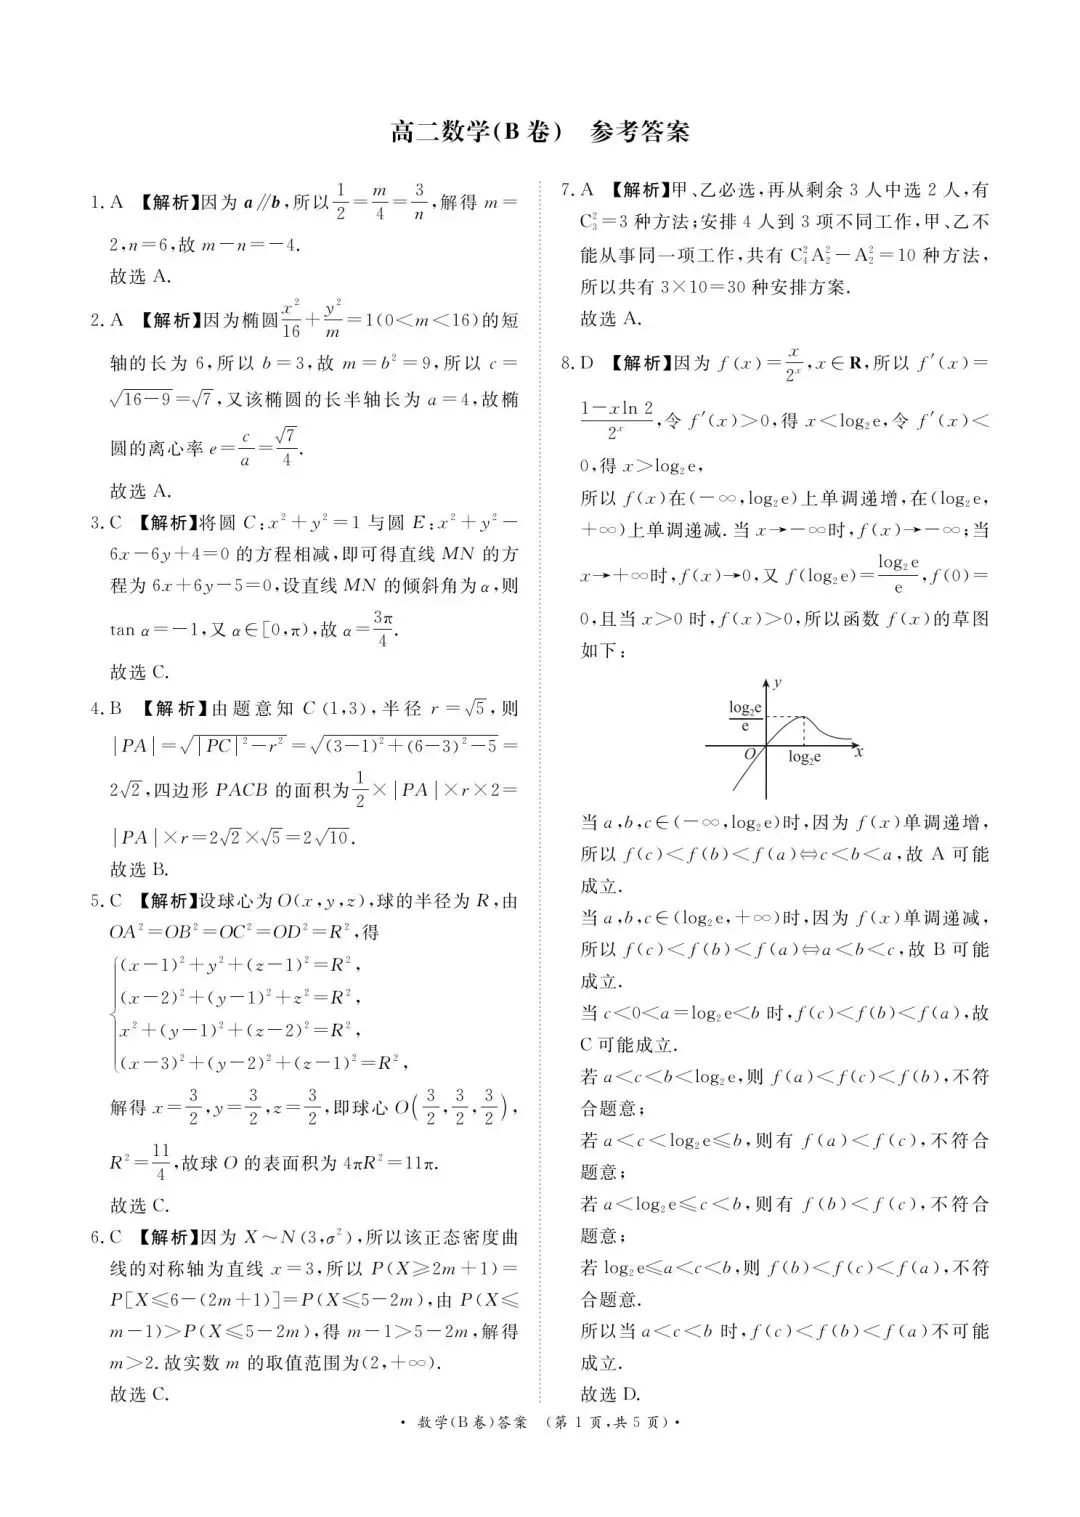 高二数学(B卷) 参考答案
1. A 【解析】因为 a∥b,所以 1/2=m/4=3/n,解得 m=
2,n=6,故 m-n=-4.
故选 A.
2. A 【解析】因为椭圆 x²/16+y²/m=1(0<m<16)的短
轴的长为 6,所以 b=3,故 m=b²=9,所以 c=
√(16-9)=√7,又该椭圆的长半轴长为 a=4,故椭
圆的离心率 e=c/a=√7/4.
故选 A.
3. C 【解析】将圆 C:x²+y²=1 与圆 E:x²+y²-
6x-6y+4=0 的方程相减,即可得直线 MN 的方
程为 6x+6y-5=0,设直线 MN 的倾斜角为α,则
tan α=-1,又 α∈[0,π),故 α=3π/4.
故选 C.
4. B 【解析】由题意知 C(1,3),半径 r=√5,则
|PA|=√(|PC|²-r²)=√((3-1)²+(6-3)²-5)=
2√2,四边形 PACB 的面积为 1/2×|PA|×r×2=
|PA|×r=2√2×√5=2√10.
故选 B.
5. C 【解析】设球心为 O(x,y,z),球的半径为 R,由
OA²=OB²=OC²=OD²=R²,得
{(x-1)²+y²+(z-1)²=R²,
(x-2)²+(y-1)²+z²=R²,
x²+(y-1)²+(z-2)²=R²,
(x-3)²+(y-2)²+(z-1)²=R²,
解得 x=3/2,y=3/2,z=3/2,即球心 O(3/2,3/2,3/2),
R²=11/4,故球 O 的表面积为 4πR²=11π.
故选 C.
6. C 【解析】因为 X~N(3,σ²),所以该正态密度曲
线的对称轴为直线 x=3,所以 P(X≥2m+1)=
P[X≤6-(2m+1)]=P(X≤5-2m),由 P(X≤
m-1)>P(X≤5-2m),得 m-1>5-2m,解得
m>2.故实数 m 的取值范围为(2,+∞).
故选 C.
7. A 【解析】甲、乙必选,再从剩余 3 人中选 2 人,有
C₃²=3 种方法;安排 4 人到 3 项不同工作,甲、乙不
能从事同一项工作,共有 C₄²A₂²-A₂²=10 种方法,
所以共有 3×10=30 种安排方案.
故选 A.
8. D 【解析】因为 f(x)=x/2ˣ,x∈R,所以 f′(x)=
(1-xln 2)/2ˣ,令 f′(x)>0,得 x<log₂e,令 f′(x)<
0,得 x>log₂e,
所以 f(x)在(-∞,log₂e)上单调递增,在(log₂e,
+∞)上单调递减.当 x→-∞时,f(x)→-∞;当
x→+∞时,f(x)→0,又 f(log₂e)=log₂e/e,f(0)=
0,且当 x>0 时,f(x)>0,所以函数 f(x)的草图
如下:
y
log₂e/e
O
log₂e
x
当 a,b,c∈(-∞,log₂e)时,因为 f(x)单调递增,
所以 f(c)<f(b)<f(a)⇔c<b<a,故 A 可能
成立.
当 a,b,c∈(log₂e,+∞)时,因为 f(x)单调递减,
所以 f(c)<f(b)<f(a)⇔a<b<c,故 B 可能
成立.
当 c<0<a=log₂e<b 时,f(c)<f(b)<f(a),故
C 可能成立.
若 a<c<b<log₂e,则 f(a)<f(c)<f(b),不符
合题意;
若 a<c<log₂e≤b,则有 f(a)<f(c),不符合
题意;
若 a<log₂e≤c<b,则有 f(b)<f(c),不符合
题意;
若 log₂e≤a<c<b,则 f(b)<f(c)<f(a),不符
合题意.
所以当 a<c<b 时,f(c)<f(b)<f(a)不可能
成立.
故选 D.
· 数学(B卷)答案 (第 1 页,共 5 页) ·